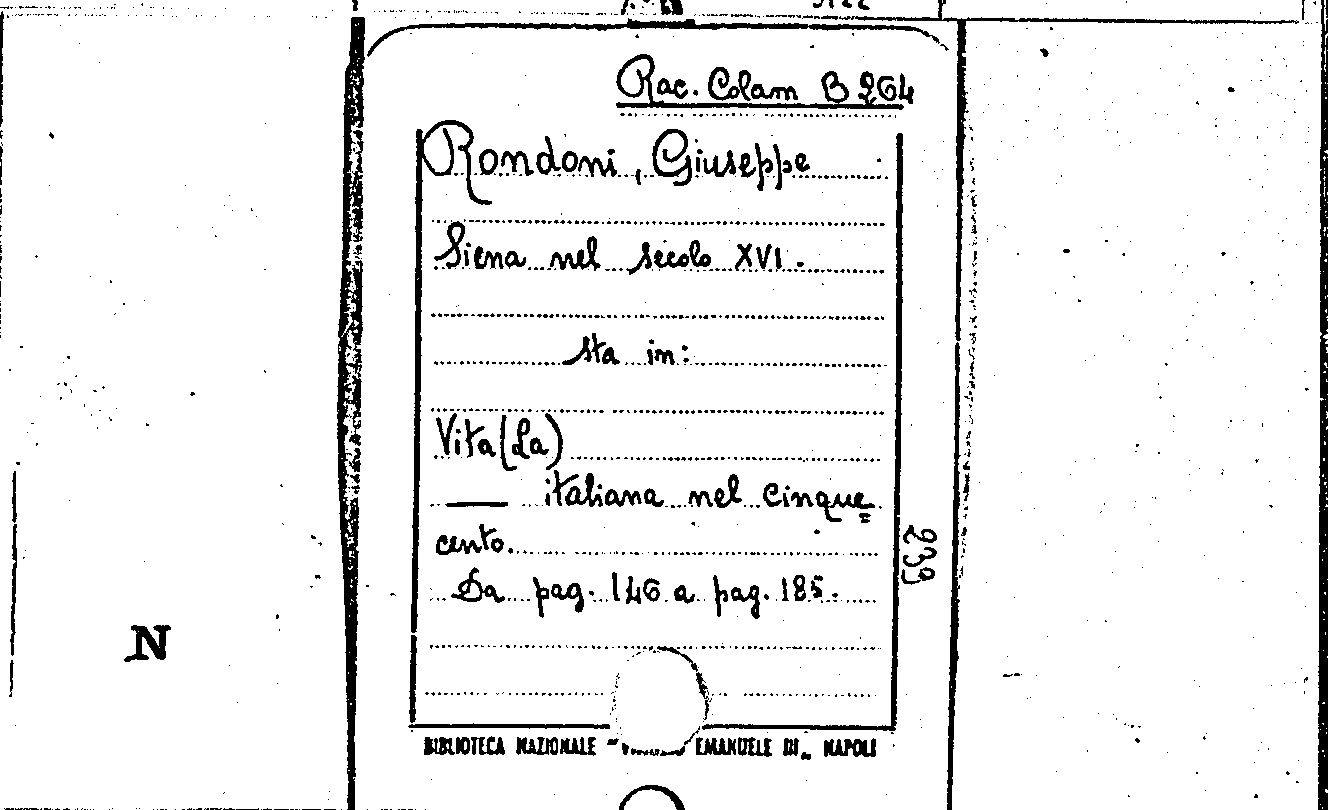 Rac. Colam B 264
Rondoni, Giuseppe
Siena nel secolo XVI.
sta in:
Vita (La)
— italiana nel cinque=
cento.
Da pag. 146 a pag. 185.
239
N
BIBLIOTECA NAZIONALE - EMANUELE III„ NAPOLI